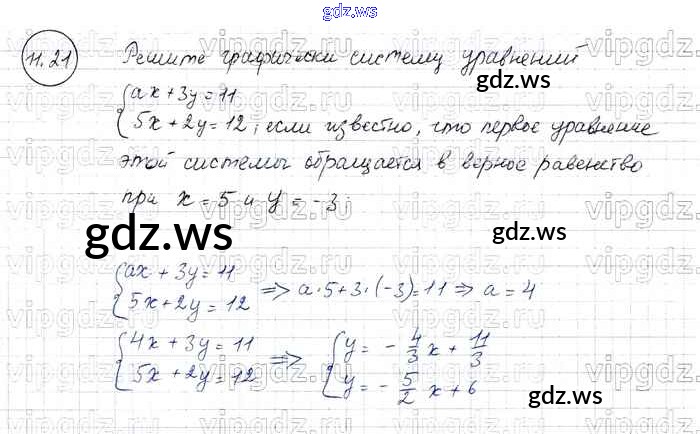 gdz.ws
11.21 Решите графически систему уравнений
{ax + 3y = 11
{5x + 2y = 12, если известно, что первое уравнение
этой системы обращается в верное равенство
при x = 5 и y = -3
gdz.ws
gdz.ws
gdz.ws
{ax + 3y = 11
{5x + 2y = 12 => a·5+3·(-3)=11 => a = 4
{4x + 3y = 11
{5x + 2y = 12 => {y = - 4/3 x + 11/3
{y = - 5/2 x + 6
gdz.ws
gdz.ws
vipgdz.ru